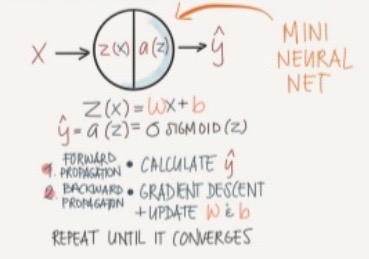 X → z(x) a(z) → ŷ
MINI
NEURAL
NET
Z(x) = Wx + b
ŷ = a(z) = σ SIGMOID(z)
1. FORWARD PROPAGATION • CALCULATE ŷ
2. BACKWARD PROPAGATION • GRADIENT DESCENT
+ UPDATE W & b
REPEAT UNTIL IT CONVERGES